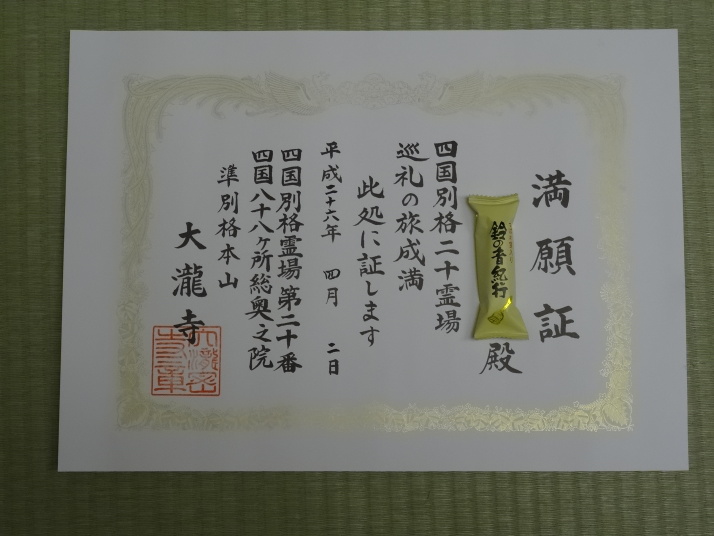 満願証
殿
鈴の音紀行
四国別格二十霊場
巡礼の旅成満
此処に証します
平成二十六年 四月 二日
四国別格霊場第二十番
四国八十八ヶ所総奥之院
準別格本山
大瀧寺